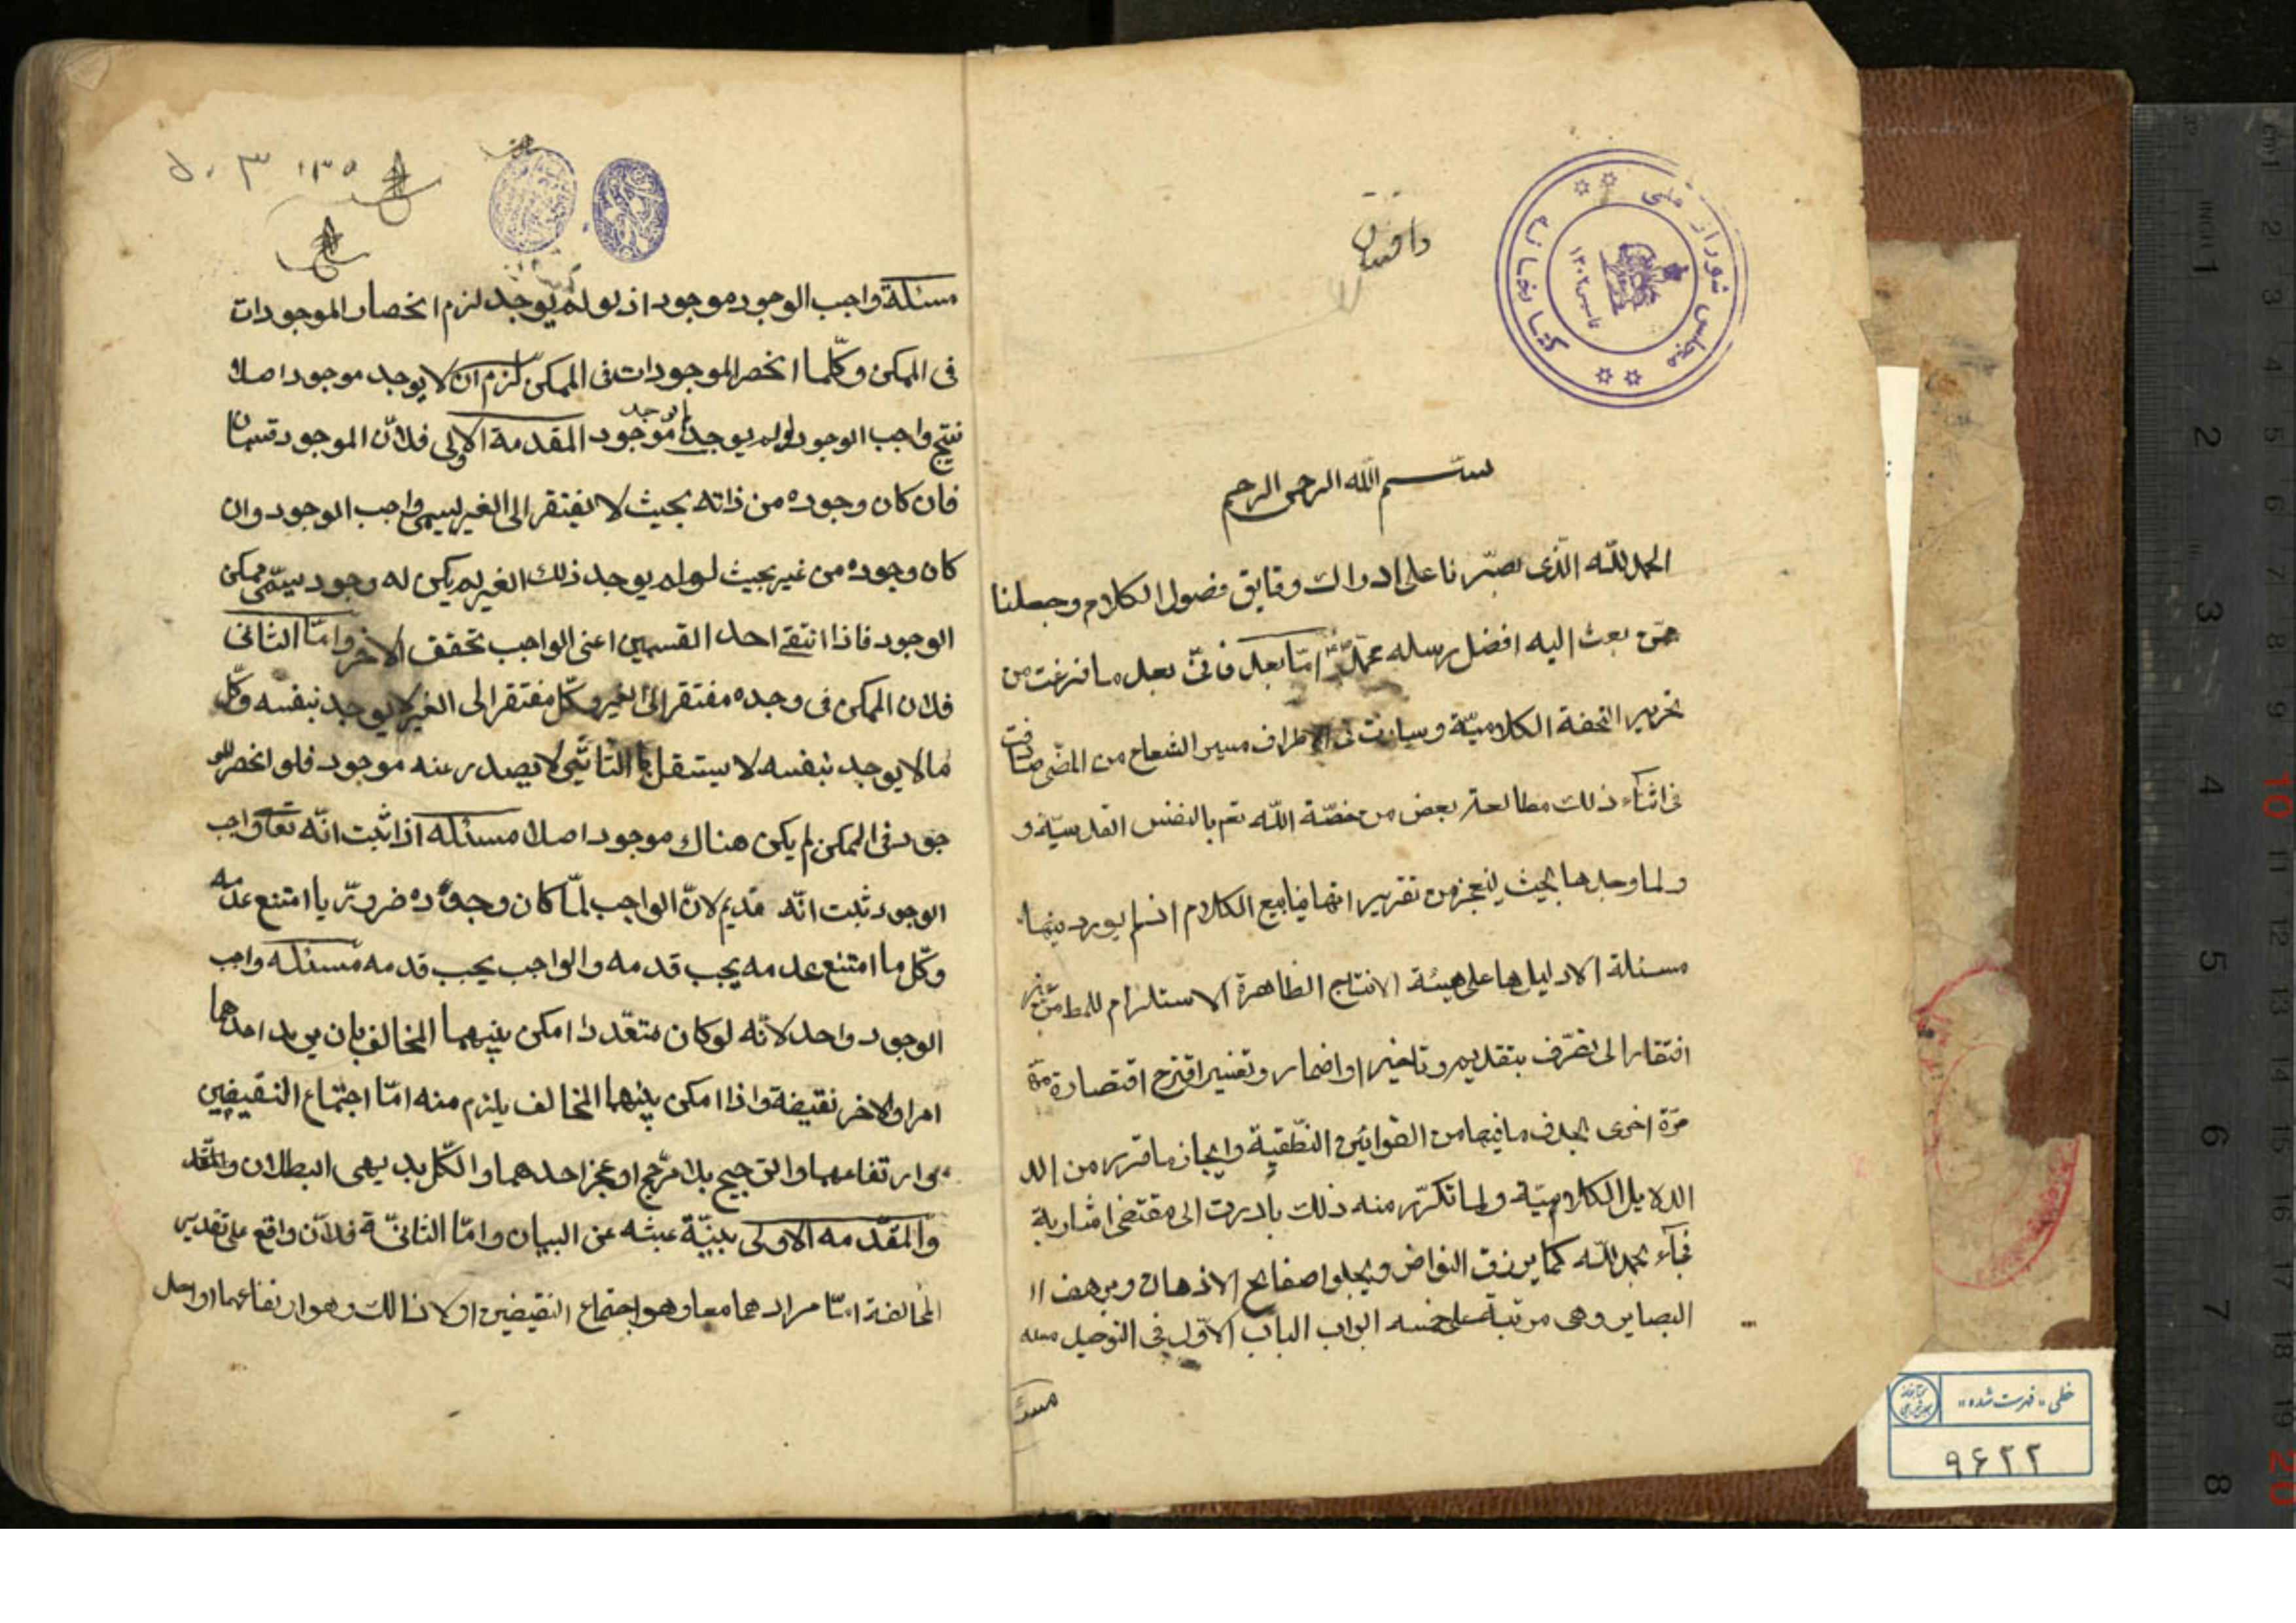 بسم الله الرحمن الرحيم
الحمد لله الّذى بصّرنا على ادراك دقايق فضول الكلام وجعلنا
ممّن بعث اليه افضل رسله محمّد امّا بعد فانّى بعد ما فرغت من
تحرير التحفة الكلاميّة وسارت فى الاطراف مسير الشعاع من المضى صادفت
فى اثناء ذلك مطالعة بعض من خصّه الله تعم بالنفس القدسيّة و
ولما وجدها بحيث ينعجز من تقرير اتها ينابيع الكلام اذ لم يورد فيها
مسئلة الا دليلها على هيئة الانتاج الظاهرة الاستلزام للمط من غير
افتقار الى تصرّف بتقديم وتاخير او اضمار وتغيير اقترح اقتصاره مرّة
مرّة اخرى بحذف ما فيها من القوانين النطقيّة وايجاز ما قرر من الد
الدلايل الكلاميّة ولما تكرّر منه ذلك بادرت الى مقتضى اشاريه
فجآء بحمد الله كما يرزق النواض ويجلوا صفايح الاذهان ويرهف ال
البصاير وهى مرتبة على خمسه ابواب الباب الاوّل فى التوحيد مسئله
مسئلة واجب الوجود موجود اذ لو لم يوجد لزم انحصار الموجودات
فى الممكن وكلّما انحصر الموجودات فى الممكن لزم ان لا يوجد موجود اصلا
ينتج واجب الوجود لو لم يوجد ما وجد موجود المقدمة الاولى فلانّ الموجود قسمان
فان كان وجوده من ذاته بحيث لا يفتقر الى الغير ليسمى واجب الوجود وان
كان وجوده من غير بحيث لو لم يوجد ذلك الغير لم يكن له وجود يسمّى ممكن
الوجود فاذا انتفى احد القسمين اعنى الواجب تحقق الاخر وامّا الثانى
فلان الممكن فى وجده مفتقر الى الغير وكلّ مفتقر الى الغير لا يوجد بنفسه وكلّ
ما لا يوجد بنفسه لا يستقل بالتاثير لا يصدر عنه موجود فلو انحصر المو
جود فى الممكن لم يكن هناك موجود اصلا مسئله اذا ثبت انّه تعالى واجب
الوجود ثبت انّه قديم لانّ الواجب لمّا كان وجوده ضروريّا امتنع عدمه
وكلّ ما امتنع عدمه يجب قدمه والواجب يجب قدمه مسئله واجب
الوجود واحد لانّه لو كان متعدّدا امكن بينهما المخالف بان يريد احدهما
امرا والاخر نقيضه واذا امكن بينهما المخالف يلزم منه امّا اجتماع النقيضين
او ارتفاعهما والترجيح بلا مرّجح او عجز احدهما والكلّ بديهى البطلان والمقد
والمقدّمه الاولى بينّة غنيّه عن البيان وامّا الثانيّة فلانّ واقع على تقدير
المخالفة امّا مرادهما معا وهو اجتماع النقيضين او لا ذا لك وهو ارتفاعهما او احد
مسئلة
مجلس شوراى ملى
كتابخانه
تاسيس ۱۳۰۲
خطى «فهرست شده»
۹۶۲۲